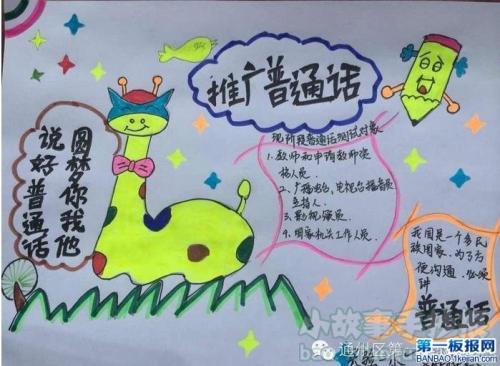 推广普通话
说好普通话
圆梦你我他
现阶段普通话测试对象
1、教师和申请教师资
格人员.
2、广播电台,电视台播音员
主持人.
3、影视演员.
4、国家机关工作人员.
我国是一个多民
族国家.为了方
便沟通.必须
讲
普通话
通州区第一
第一板报网
BANBAO.1kejian.com